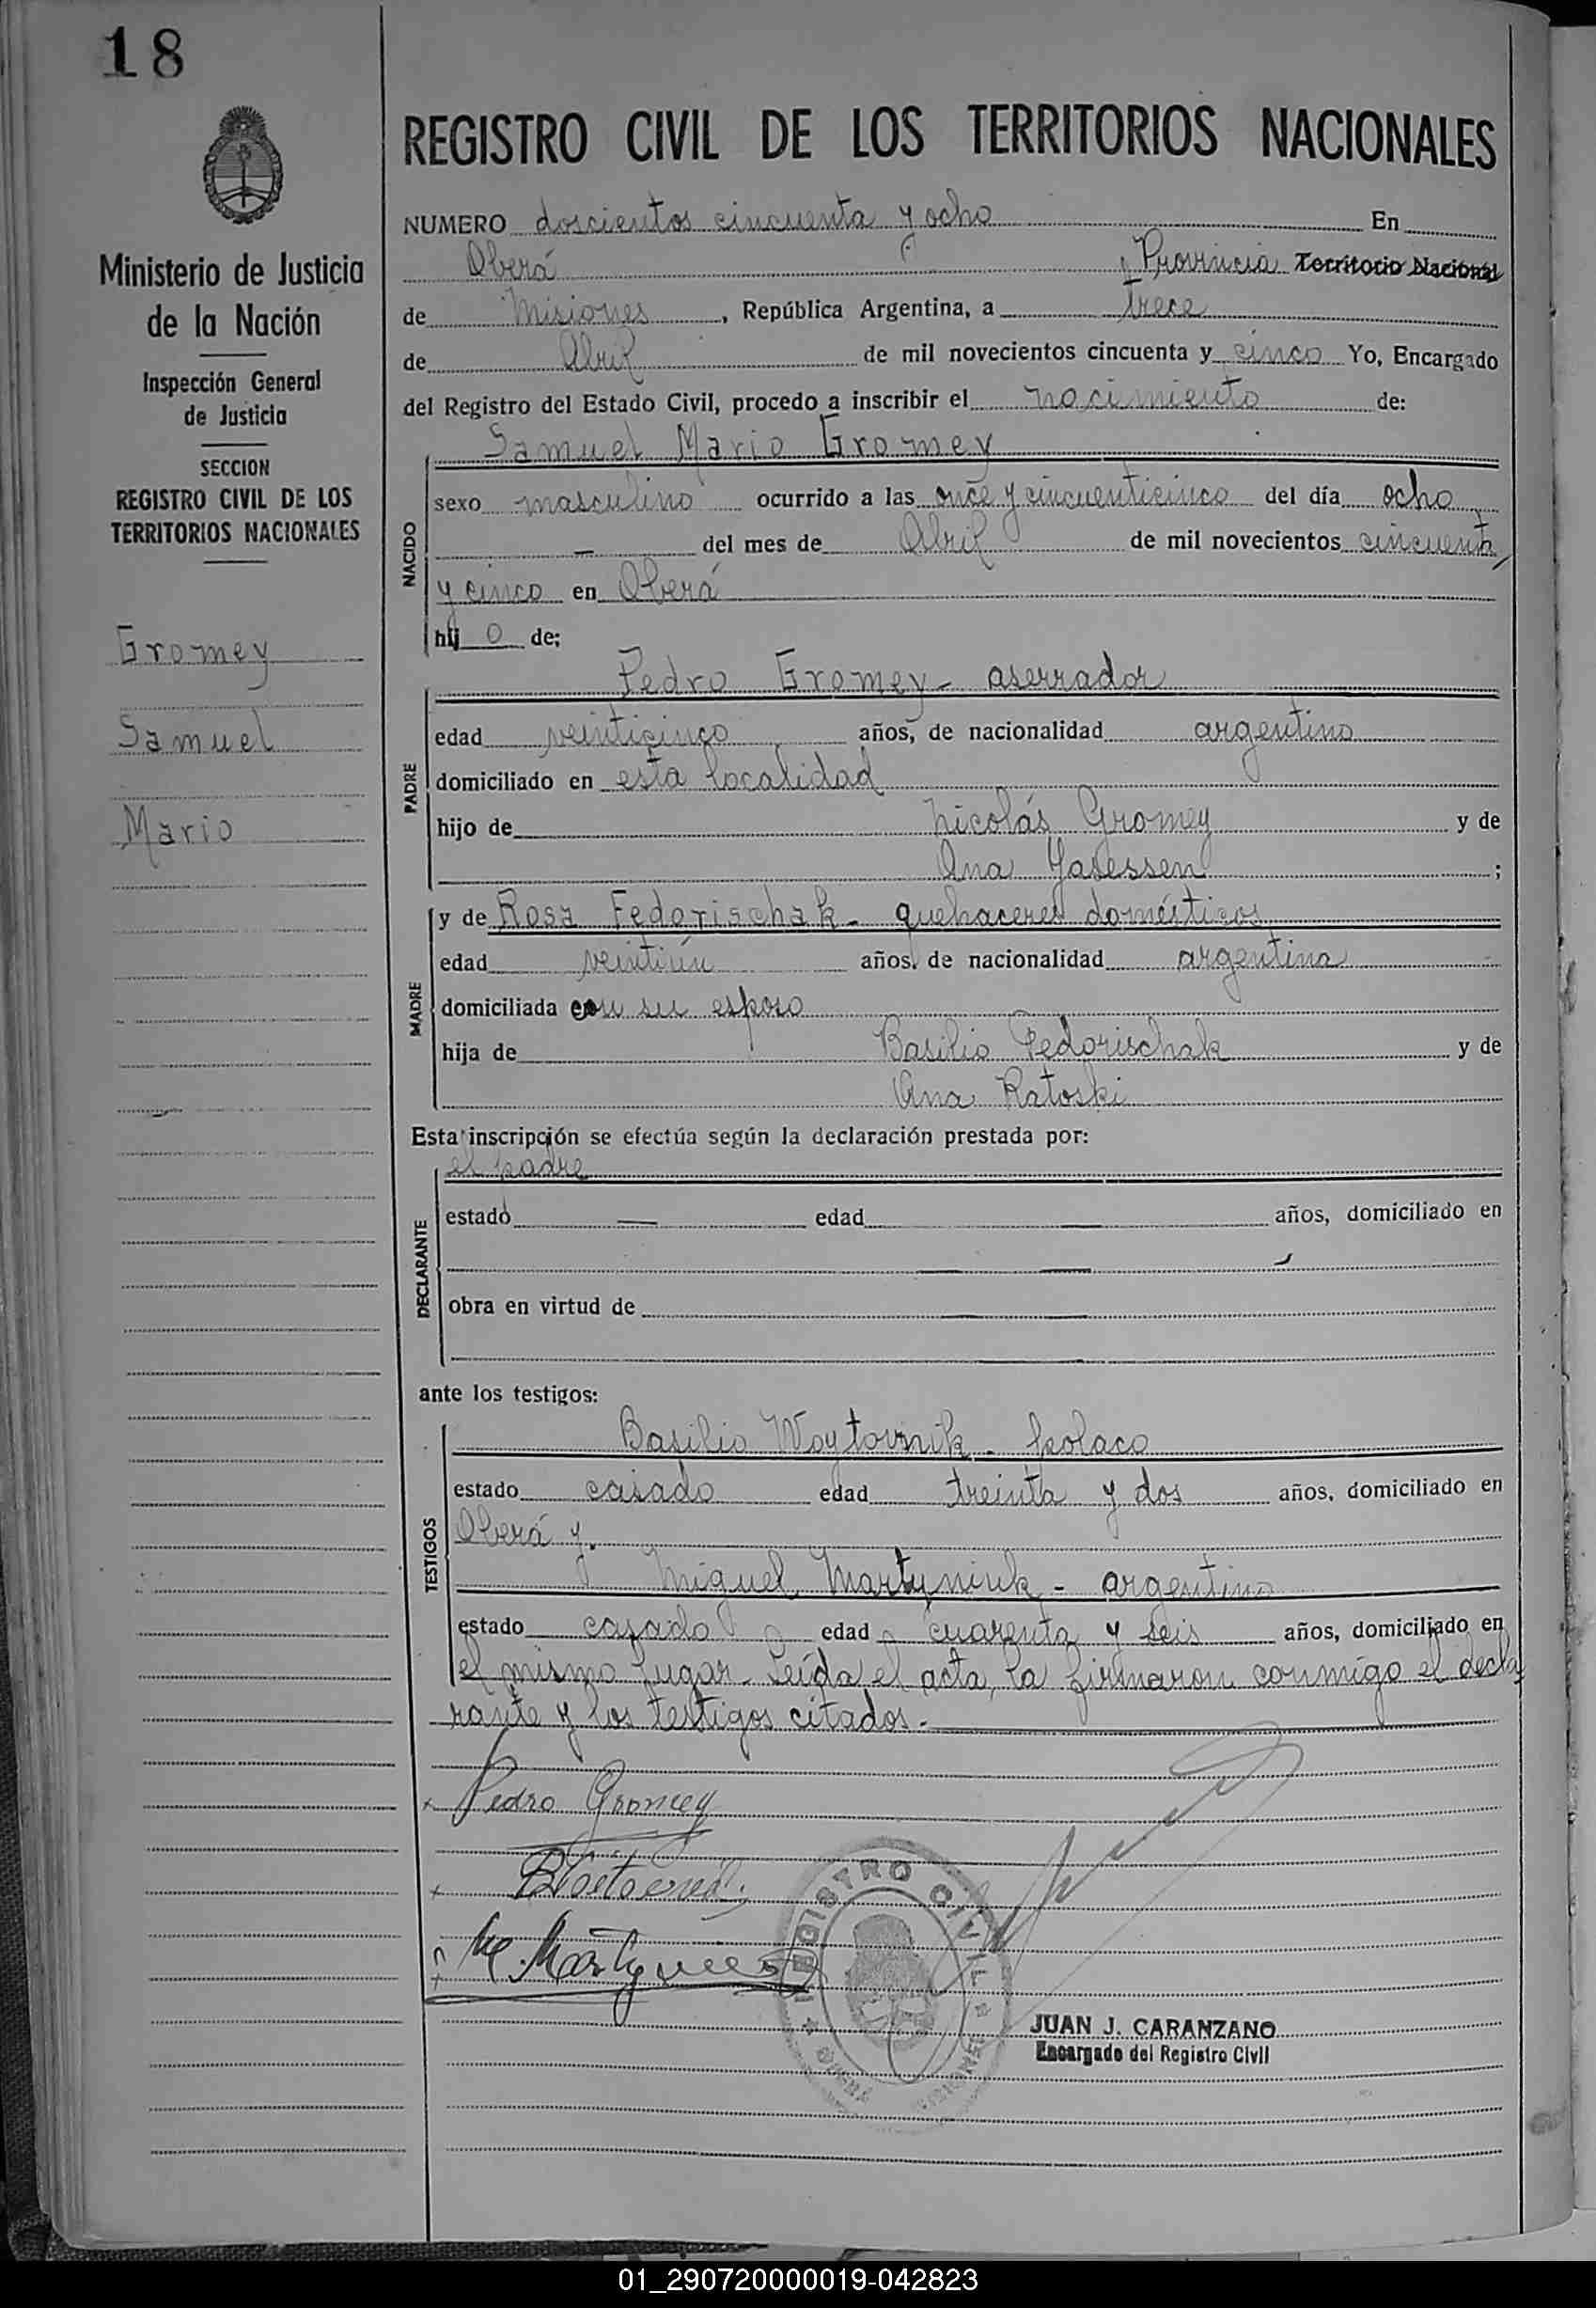 18
Ministerio de Justicia
de la Nación
Inspección General
de Justicia
SECCION
REGISTRO CIVIL DE LOS
TERRITORIOS NACIONALES
Gromey
Samuel
Mario
REGISTRO CIVIL DE LOS TERRITORIOS NACIONALES
NUMERO doscientos cincuenta y ocho En
Oberá, Provincia Territorio Nacional
de Misiones, República Argentina, a trece
de Abril de mil novecientos cincuenta y cinco Yo, Encargado
del Registro del Estado Civil, procedo a inscribir el nacimiento de:
Samuel Mario Gromey
NACIDO
sexo masculino ocurrido a las once y cincuenticinco del día ocho
— del mes de Abril de mil novecientos cincuenta
y cinco en Oberá
hij o de:
Pedro Gromey - aserrador
PADRE
edad veinticinco años, de nacionalidad argentino
domiciliado en esta localidad
hijo de Nicolás Gromey y de
Ana Yasessen ;
MADRE
y de Rosa Fedorischak - quehaceres domésticos
edad veintiún años, de nacionalidad argentina
domiciliada con su esposo
hija de Basilio Fedorischak y de
Ana Ratoski
Esta inscripción se efectúa según la declaración prestada por:
el padre
DECLARANTE
estado — edad — años, domiciliado en
— —
obra en virtud de —
ante los testigos:
TESTIGOS
Basilio Woytovznik - polaco
estado casado edad treinta y dos años, domiciliado en
Oberá y.
Miguel Martyniuk - argentino
estado casado edad cuarenta y seis años, domiciliado en
el mismo lugar - Leída el acta, la firmaron conmigo el decla
rante y los testigos citados.-
Pedro Gromey
M. Martyniuk
REGISTRO CIVIL
JUAN J. CARANZANO
Encargado del Registro Civil
01_290720000019-042823